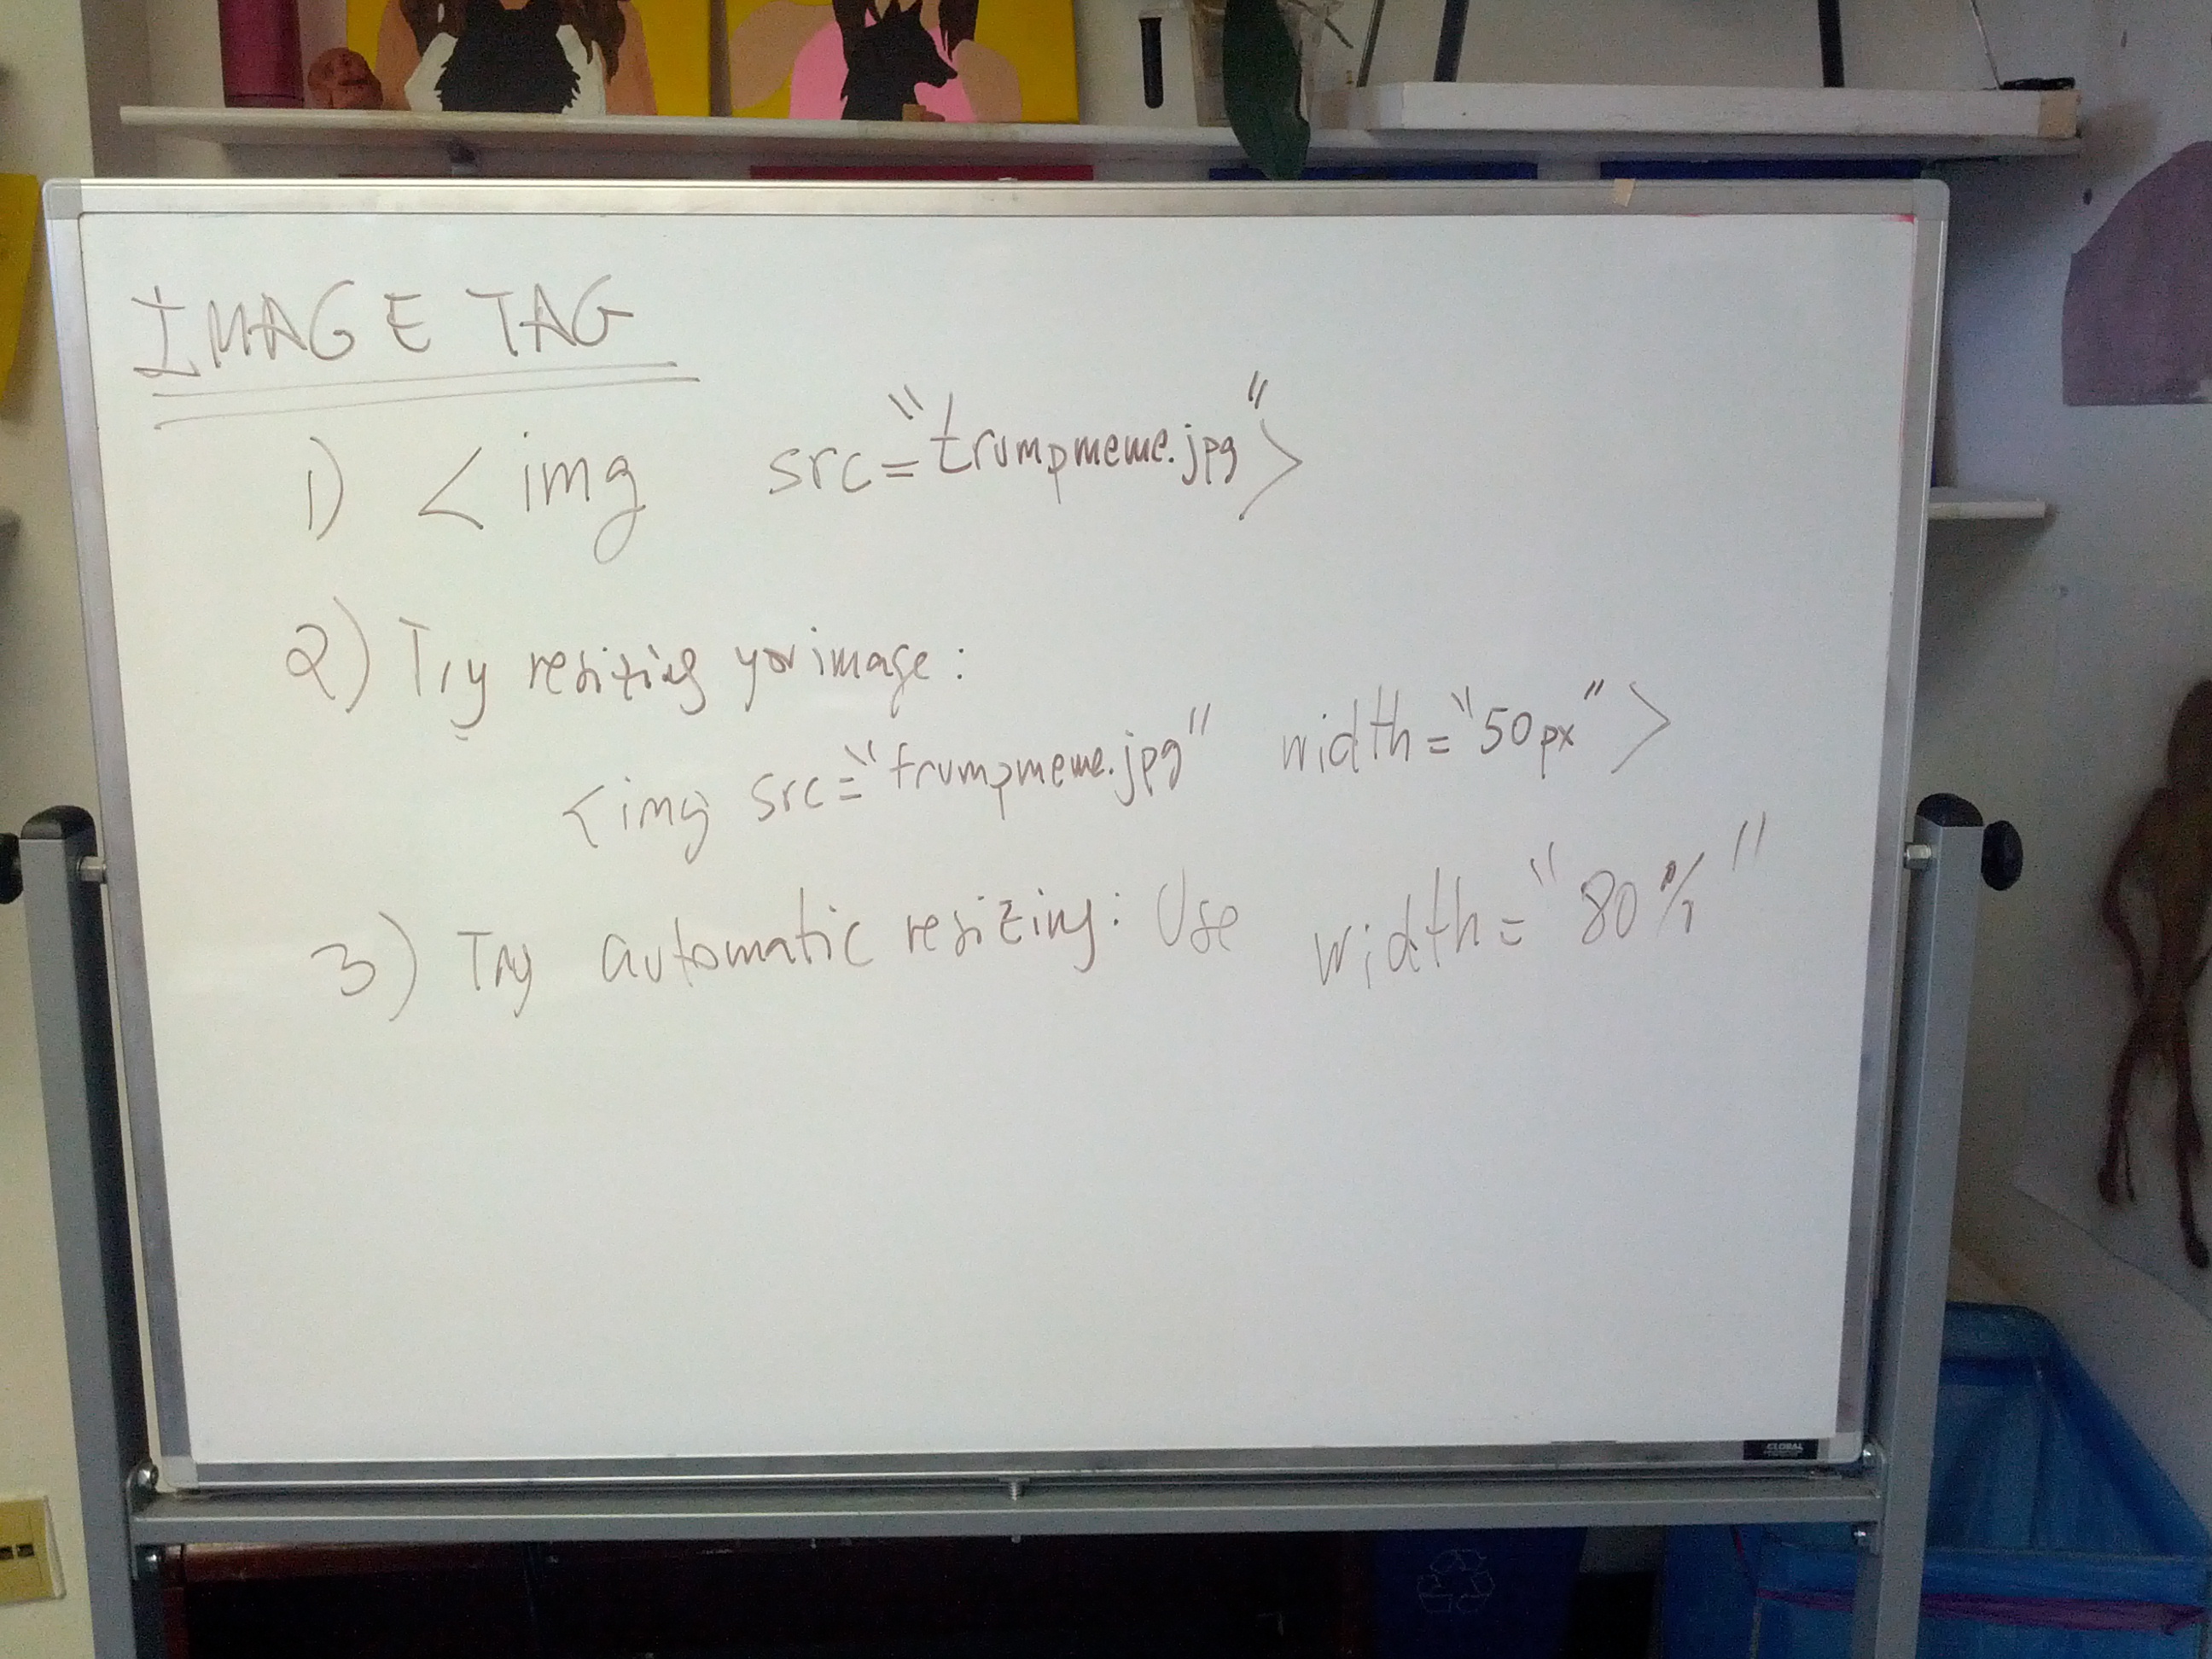 IMAGE TAG
1) <img src="trumpmeme.jpg">
2) Try resizing your image:
<img src="trumpmeme.jpg" width="50px">
3) Try automatic resizing: Use width="80%"
GLOBAL